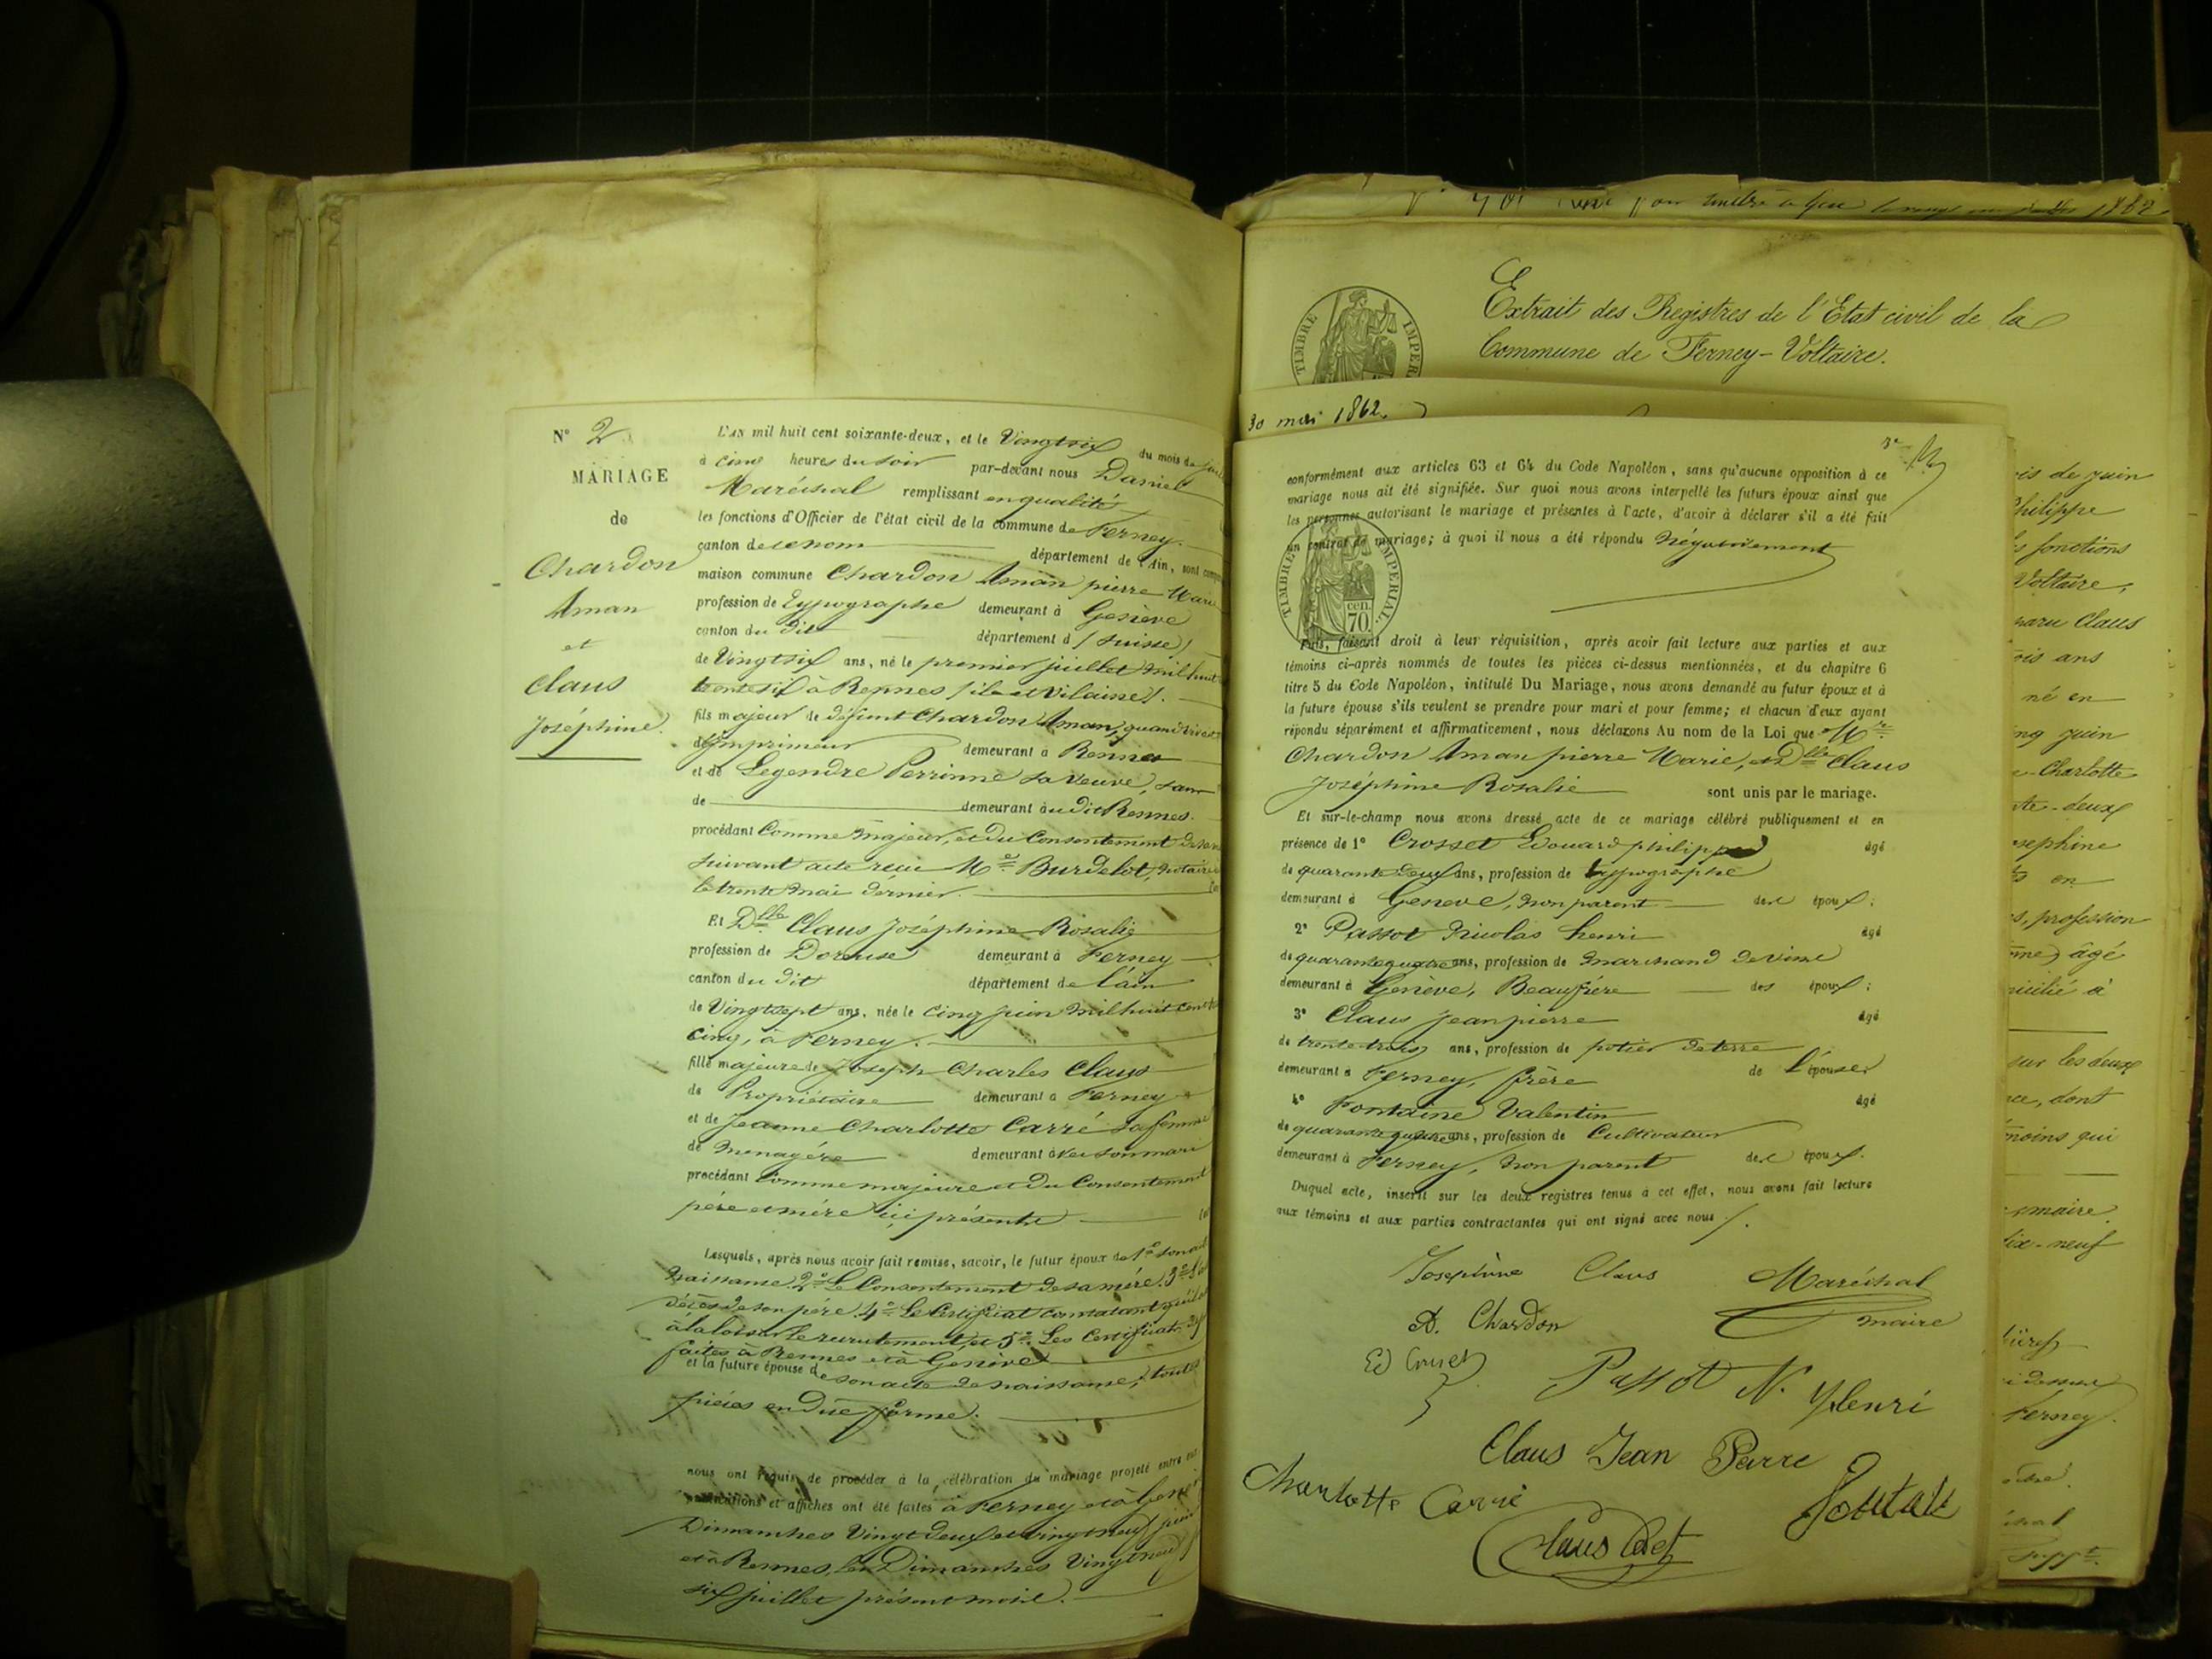 N° 2
MARIAGE
de
Chardon
Aman
et
Claus
Joséphine.
L'AN mil huit cent soixante-deux, et le Vingtsix du mois de
à cinq heures du soir par-devant nous Daniel
Maréchal remplissant en qualité
les fonctions d'Officier de l'état civil de la commune de Ferney.
canton de ce nom département de l'Ain, sont
maison commune Chardon Aman pierre Marie
profession de Typographe demeurant à Genève
canton du dit département d (Suisse)
de Vingtsix ans, né le premier juillet mil huit
trente six à Rennes (ile et Vilaine).
fils majeur de défunt Chardon Aman, quand vivait
d'imprimeur demeurant à Rennes
et de Legendre Perrinne sa veuve, sans
de demeurant au dit Rennes.
procédant Comme majeur, et du Consentement de sa
suivant acte reçu Me Burdelot, notaire
le trente mai dernier.
Et Dlle Claus Joséphine Rosalie
profession de Doreuse demeurant à Ferney
canton du dit département de l'ain
de Vingtsept ans, née le cinq juin mil huit cent
cinq, à Ferney.
fille majeure de Joseph Charles Claus
de Propriétaire demeurant à Ferney
et de Jeanne Charlotte Carré sa femme
de menagère demeurant avec son mari
procédant Comme majeure et du Consentement
père et mère ici présents
Lesquels, après nous avoir fait remise, savoir, le futur époux de 1° son
naissance 2° Le Consentement de sa mère 3°
décès de son père 4° Le Certificat constatant qu'il
à la loi sur le recrutement, et 5° Les Certificats
faites à Rennes et à Genève
et la future épouse de son acte de naissance, toutes
pièces en dûe forme.
nous ont requis de procéder à la célébration du mariage projeté entre
publications et affiches ont été faites à Ferney et à
Dimanches Vingt deux et vingt neuf juin
et à Rennes, les Dimanches Vingt neuf
six juillet présent mois.
Extrait des Registres de l'Etat civil de la
Commune de Ferney-Voltaire.
TIMBRE IMPER
30 mai 1862.
conformément aux articles 63 et 64 du Code Napoléon, sans qu'aucune opposition à ce
mariage nous ait été signifiée. Sur quoi nous avons interpellé les futurs époux ainsi que
les personnes autorisant le mariage et présentes à l'acte, d'avoir à déclarer s'il a été fait
un contrat de mariage; à quoi il nous a été répondu Négativement
TIMBRE IMPERIAL
cen.
70.
Puis, faisant droit à leur réquisition, après avoir fait lecture aux parties et aux
témoins ci-après nommés de toutes les pièces ci-dessus mentionnées, et du chapitre 6
titre 5 du Code Napoléon, intitulé Du Mariage, nous avons demandé au futur époux et à
la future épouse s'ils veulent se prendre pour mari et pour femme; et chacun d'eux ayant
répondu séparément et affirmativement, nous déclarons Au nom de la Loi que Mr
Chardon Aman pierre Marie, et Dlle Claus
Joséphine Rosalie sont unis par le mariage.
Et sur-le-champ nous avons dressé acte de ce mariage célébré publiquement et en
présence de 1° Crosset Edouard philippe âgé
de quarante deux ans, profession de typographe
demeurant à Geneve, non parent des époux;
2° Passot Nicolas henri âgé
de quarante quatre ans, profession de marchand de vins
demeurant à Genève, Beaufrère des époux;
3° Claus jean pierre âgé
de trente-trois ans, profession de potier de terre
demeurant à Ferney, frère de l'épouse;
4° Fontaine Valentin âgé
de quarante quatre ans, profession de Cultivateur
demeurant à Ferney, non parent des époux.
Duquel acte, inscrit sur les deux registres tenus à cet effet, nous avons fait lecture
aux témoins et aux parties contractantes qui ont signé avec nous.
Joséphine Claus Maréchal
maire
A. Chardon
Passot N. Henri
Claus Jean Pierre
Charlotte Carré
Claus
is de juin
Philippe
s fonctions
Voltaire,
paru Claus
ois ans
né en
nq juin
Charlotte
te-deux
osephine
en
s, profession
âgé
icilié à
sur les deux
ce, dont
moins qui
maire.
dix-neuf
Ferney.